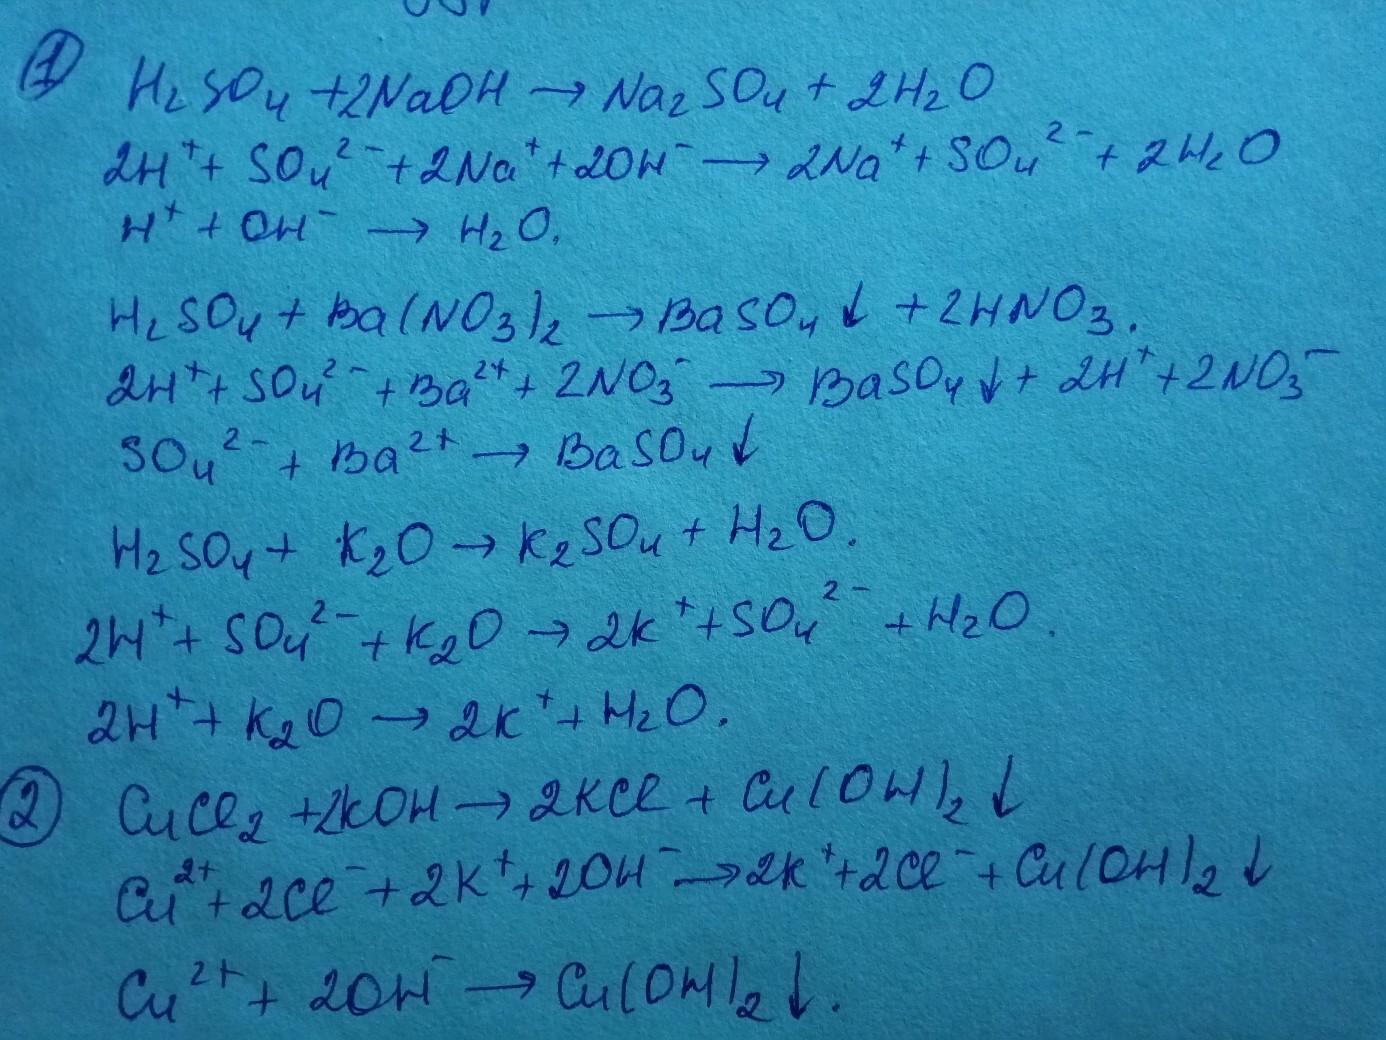 1 H₂SO₄ + 2NaOH → Na₂SO₄ + 2H₂O
2H⁺ + SO₄²⁻ + 2Na⁺ + 2OH⁻ → 2Na⁺ + SO₄²⁻ + 2H₂O
H⁺ + OH⁻ → H₂O.
H₂SO₄ + Ba(NO₃)₂ → BaSO₄↓ + 2HNO₃.
2H⁺ + SO₄²⁻ + Ba²⁺ + 2NO₃⁻ → BaSO₄↓ + 2H⁺ + 2NO₃⁻
SO₄²⁻ + Ba²⁺ → BaSO₄↓
H₂SO₄ + K₂O → K₂SO₄ + H₂O.
2H⁺ + SO₄²⁻ + K₂O → 2K⁺ + SO₄²⁻ + H₂O.
2H⁺ + K₂O → 2K⁺ + H₂O.
2 CuCl₂ + 2KOH → 2KCl + Cu(OH)₂↓
Cu²⁺ + 2Cl⁻ + 2K⁺ + 2OH⁻ → 2K⁺ + 2Cl⁻ + Cu(OH)₂↓
Cu²⁺ + 2OH⁻ → Cu(OH)₂↓.